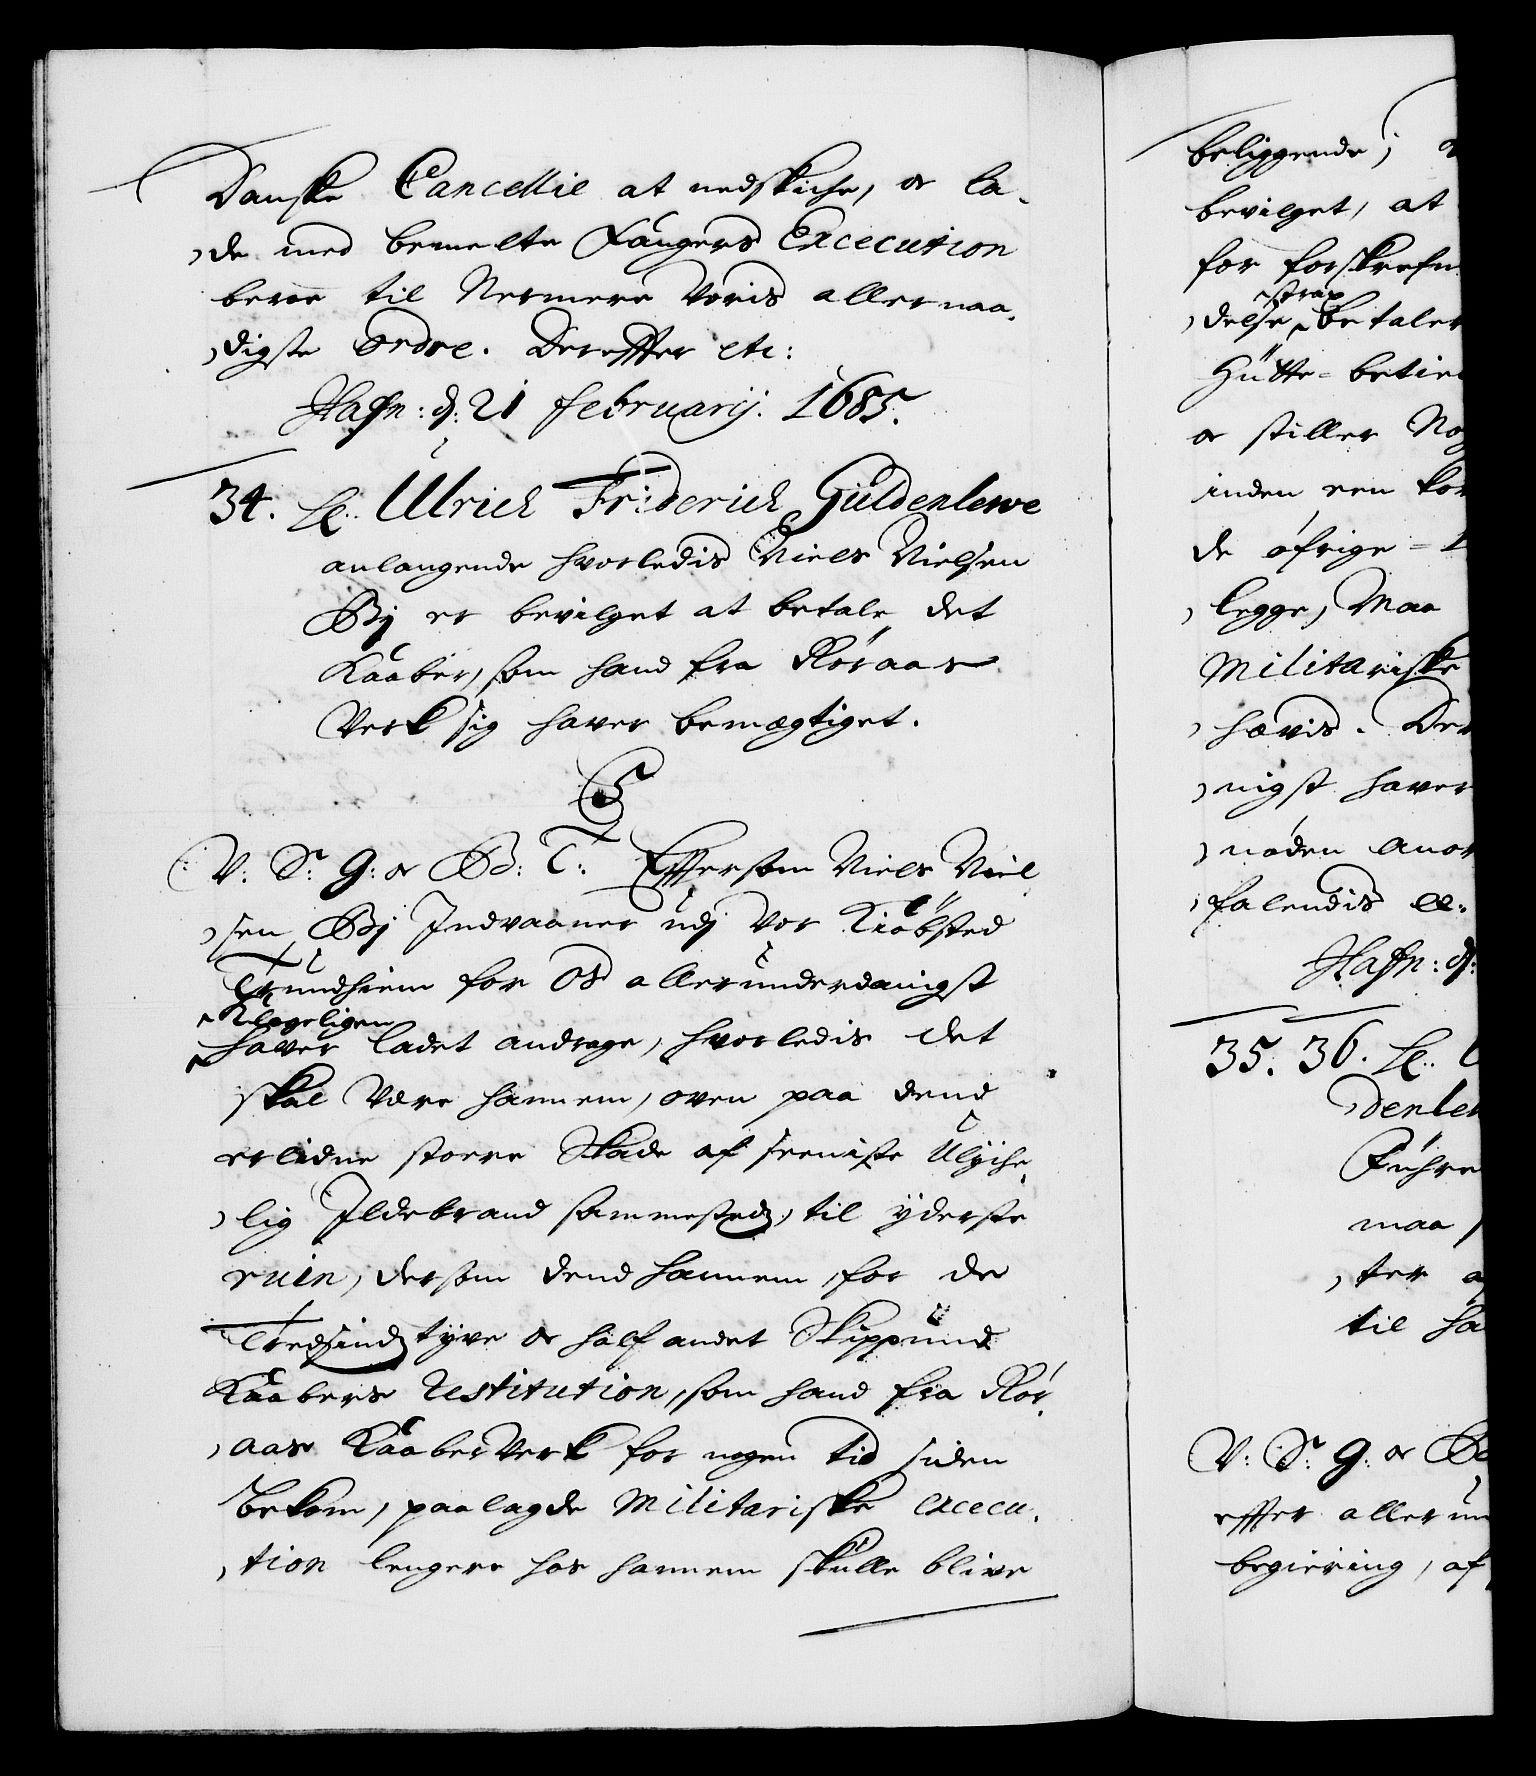 Danske Cancellie at nedskiche, oc la-
de med bemelte Fangers Excecution
beroe til Nermere Voris allernaa-
digste Ordre. Dereffter etc:
Hafn: d: 21 februarij. 1685.
34. Sl. Ulrich Friderich Güldenlewe
anlangende hvorledis Niels Nielsen
By er bevilget at betale det
Kaaber, som hand fra Röraas
Verk sig haver bemegtiget.
C5
V: S: G: oc B: T: Effersom Niels Niel
sen By Indvaaner udj Vor Kiöbsted
Trundhiem for Os allerunderdanigst
Klageligen
haver ladet andrage, hvorledis det
skal Være hannem, oven paa dend
erlidne store Skade af seeniste Ulyche-
lig Ildebrand sammesteds, til yderste
ruin, dersom dend hannem, for de
Tredsindstyve oc half andet Skippund
Kaabers restitution, som hand fra Rör-
aas KaaberVerk for nogen tid siden
bekom, paalagde Militariske excecu-
tion lengere hos hannem skulle blive
beliggende,
bevilget, at
for forskrefn
strax
delse betaler
Hütte-betien
oc stiller Noy
inden een kor
de öfrige
legge, Maa
Militariske
hævis. Der
nigst haver
nöden anor
falendis etc.
Hafn: d:
35. 36. Sl. U
denlew
Führe
maa
ter
til ha
V: S: G: oc B
effter allerun
begiering, af